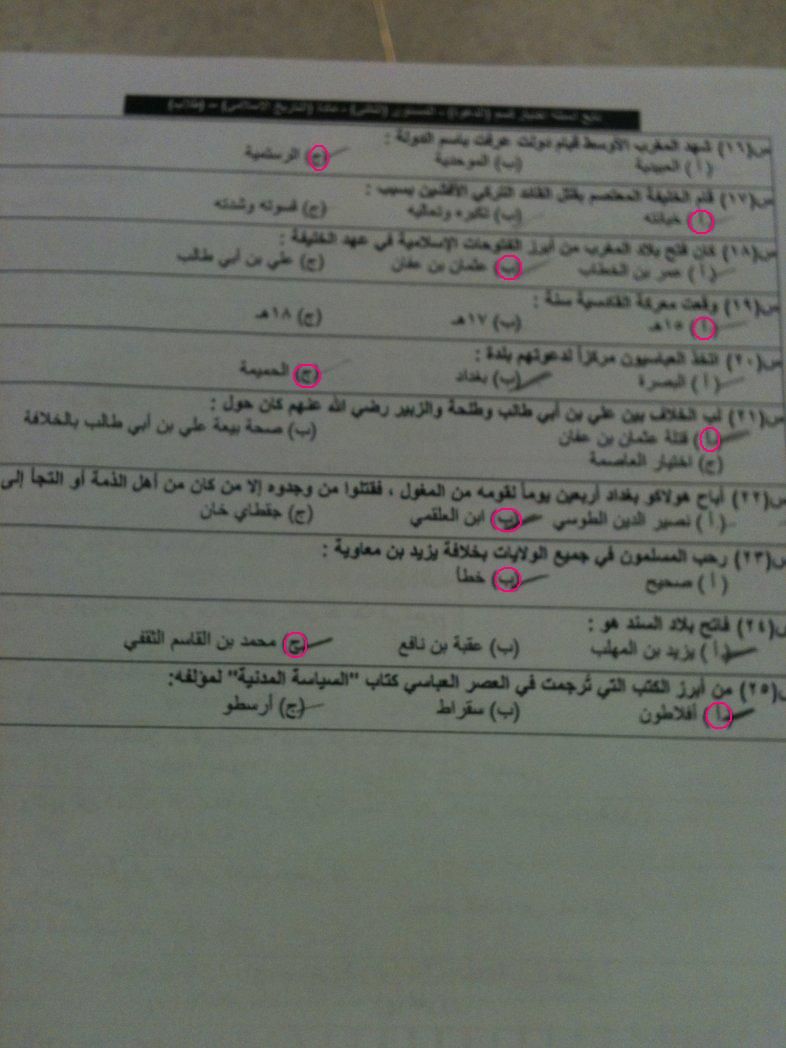 تابع أسئلة اختبار قسم (الدعوة) - المستوى (الثاني) - مادة (التاريخ الإسلامي) - (طلاب)
س(١٦) شهد المغرب الأوسط قيام دولت عرفت باسم الدولة :
(أ) المدينية (ب) الموحدية (ج) الرستمية
س(١٧) قام الخليفة المعتصم بقتل القائد التركي الأفشين بسبب :
(أ) خيانته (ب) تكبره وتعاليه (ج) قسوته وشدته
س(١٨) كان فتح بلاد المغرب من أبرز الفتوحات الإسلامية في عهد الخليفة :
(أ) عمر بن الخطاب (ب) عثمان بن عفان (ج) علي بن أبي طالب
س(١٩) وقعت معركة القادسية سنة :
(أ) ١٥هـ (ب) ١٧هـ (ج) ١٨هـ
س(٢٠) اتخذ العباسيون مركزاً لدعوتهم بلدة :
(أ) البصرة (ب) بغداد (ج) الحميمة
س(٢١) لب الخلاف بين علي بن أبي طالب وطلحة والزبير رضي الله عنهم كان حول :
(أ) قتلة عثمان بن عفان (ب) صحة بيعة علي بن أبي طالب بالخلافة
(ج) اختيار العاصمة
س(٢٢) أباح هولاكو بغداد أربعين يوماً لقومه من المغول ، فقتلوا من وجدوه إلا من كان من أهل الذمة أو التجأ إلى
(أ) نصير الدين الطوسي (ب) ابن العلقمي (ج) جغطاي خان
س(٢٣) رحب المسلمون في جميع الولايات بخلافة يزيد بن معاوية :
(أ) صحيح (ب) خطأ
س(٢٤) فاتح بلاد السند هو :
(أ) يزيد بن المهلب (ب) عقبة بن نافع (ج) محمد بن القاسم الثقفي
س(٢٥) من أبرز الكتب التي تُرجمت في العصر العباسي كتاب "السياسة المدنية" لمؤلفه:
(أ) أفلاطون (ب) سقراط (ج) أرسطو